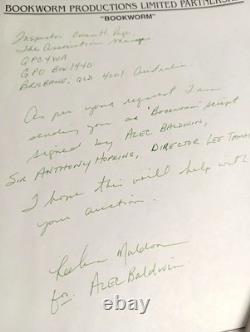 BOOKWORM PRODUCTIONS LIMITED PARTNERSHIP
"BOOKWORM"
Inspector
The Association
GPO Box 1440
BRISBANE, QLD 4001 Australia.
As per your request I am
sending you a "Bookworm" script
signed by ALEC BALDWIN,
SIR ANTHONY HOPKINS, DIRECTOR LEE
I hope this will help with
your auction.
for ALEC BALDWIN